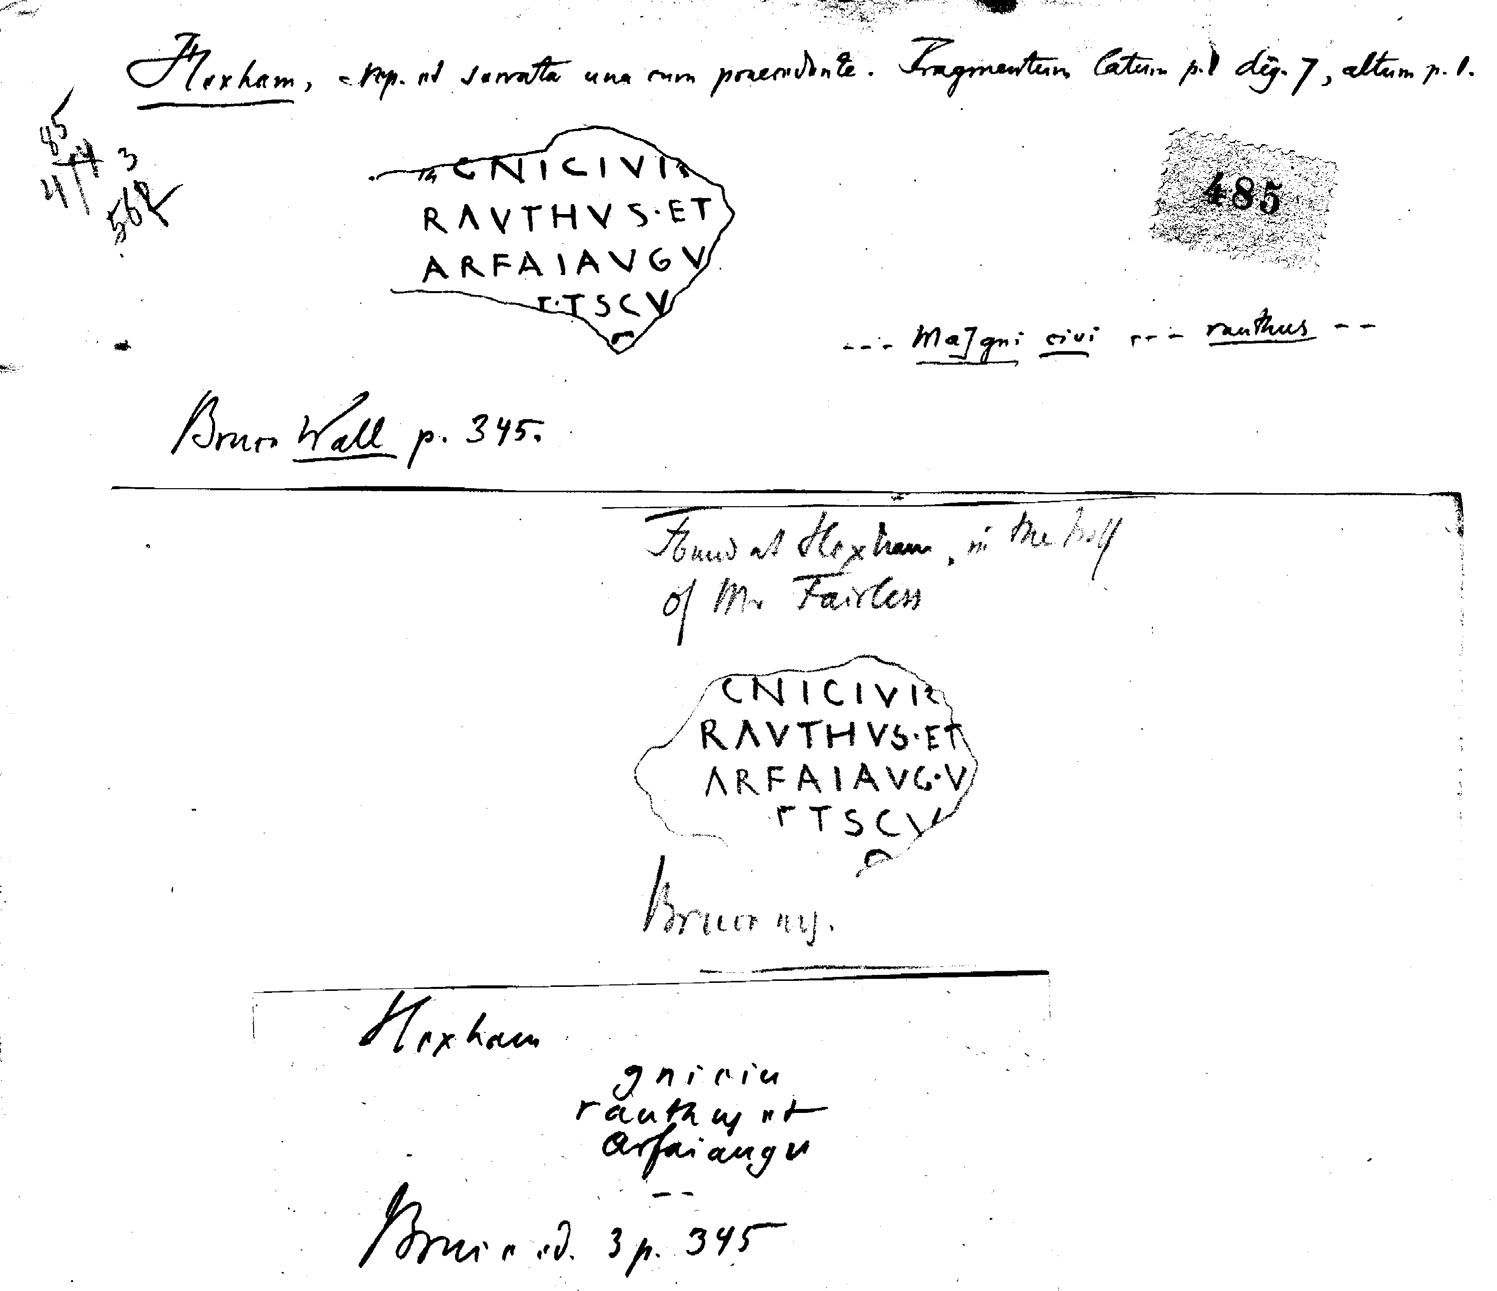 Hexham, rep. et servata una cum praecedente. Fragmentum latum p. 1 dig. 7, altum p. 1.
485
CNICIVI
RAVTHVS·ET
ARFAIAVGV
TSCV
--- Ma]gni civi --- rauthus --
Bruce Wall p. 345.
Found at Hexham, in the
of Mr Fairless
CNICIVIR
RAVTHVS·ET
ARFAIAVG·V
TSCV
Bruce ms.
Hexham
gniciu
rauthus et
arfaiaugu
--
Bruce ed. 3 p. 345